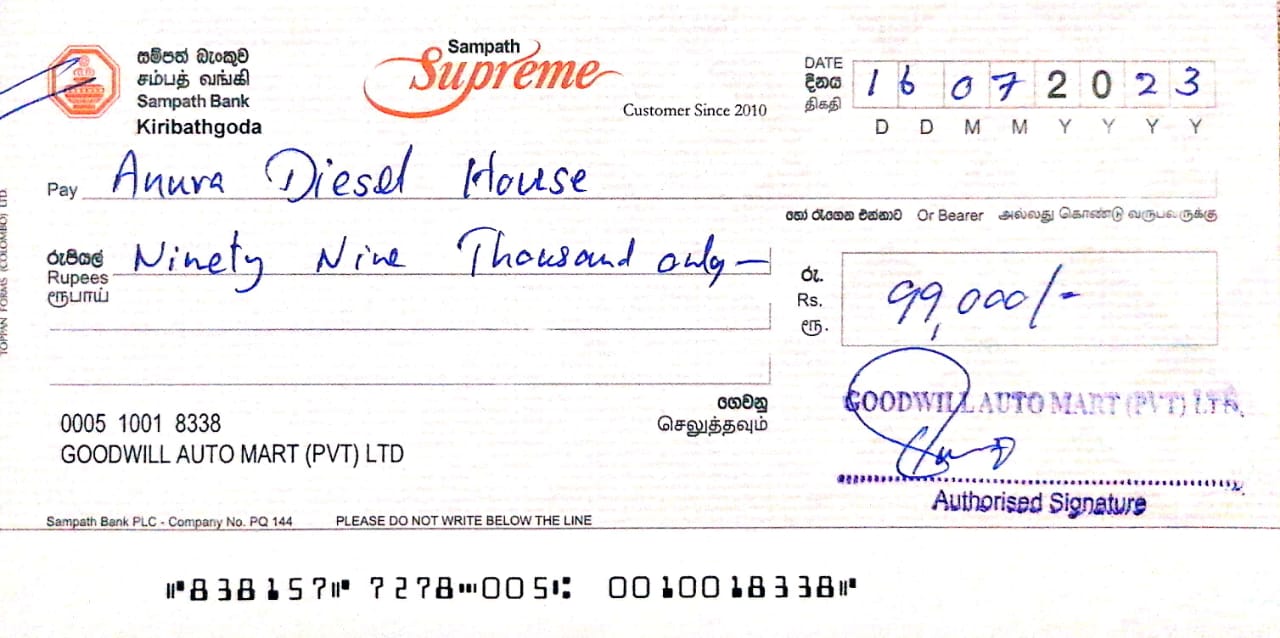 සම්පත් බැංකුව
சம்பத் வங்கி
Sampath Bank
Kiribathgoda
Sampath
Supreme
Customer Since 2010
DATE
දිනය
திகதி
1 6 0 7 2 0 2 3
D D M M Y Y Y Y
Pay Anura Diesel House
හෝ රැගෙන එන්නාට Or Bearer அல்லது கொண்டு வருபவருக்கு
රුපියල්
Rupees
ரூபாய்
Ninety Nine Thousand only —
රු.
Rs.
ரூ.
99,000/-
ගෙවනු
செலுத்தவும்
0005 1001 8338
GOODWILL AUTO MART (PVT) LTD
GOODWILL AUTO MART (PVT) LTD.
Authorised Signature
Sampath Bank PLC - Company No. PQ 144 PLEASE DO NOT WRITE BELOW THE LINE
TOPPAN FORMS (COLOMBO) LTD.
⑈838157⑈ 7278⑉005⑆ 0010018338⑈